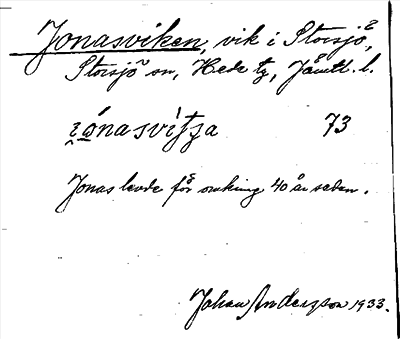 Jonasviken, vik i Storsjö,
Storsjö sn, Hede tg, Jämtl. l.
73
Jonas levde för omkring 40 år sedan.
Johan Andersson 1933.